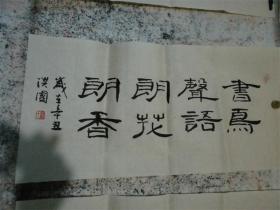 書聲朗朗
鳥語花香
歲在辛丑